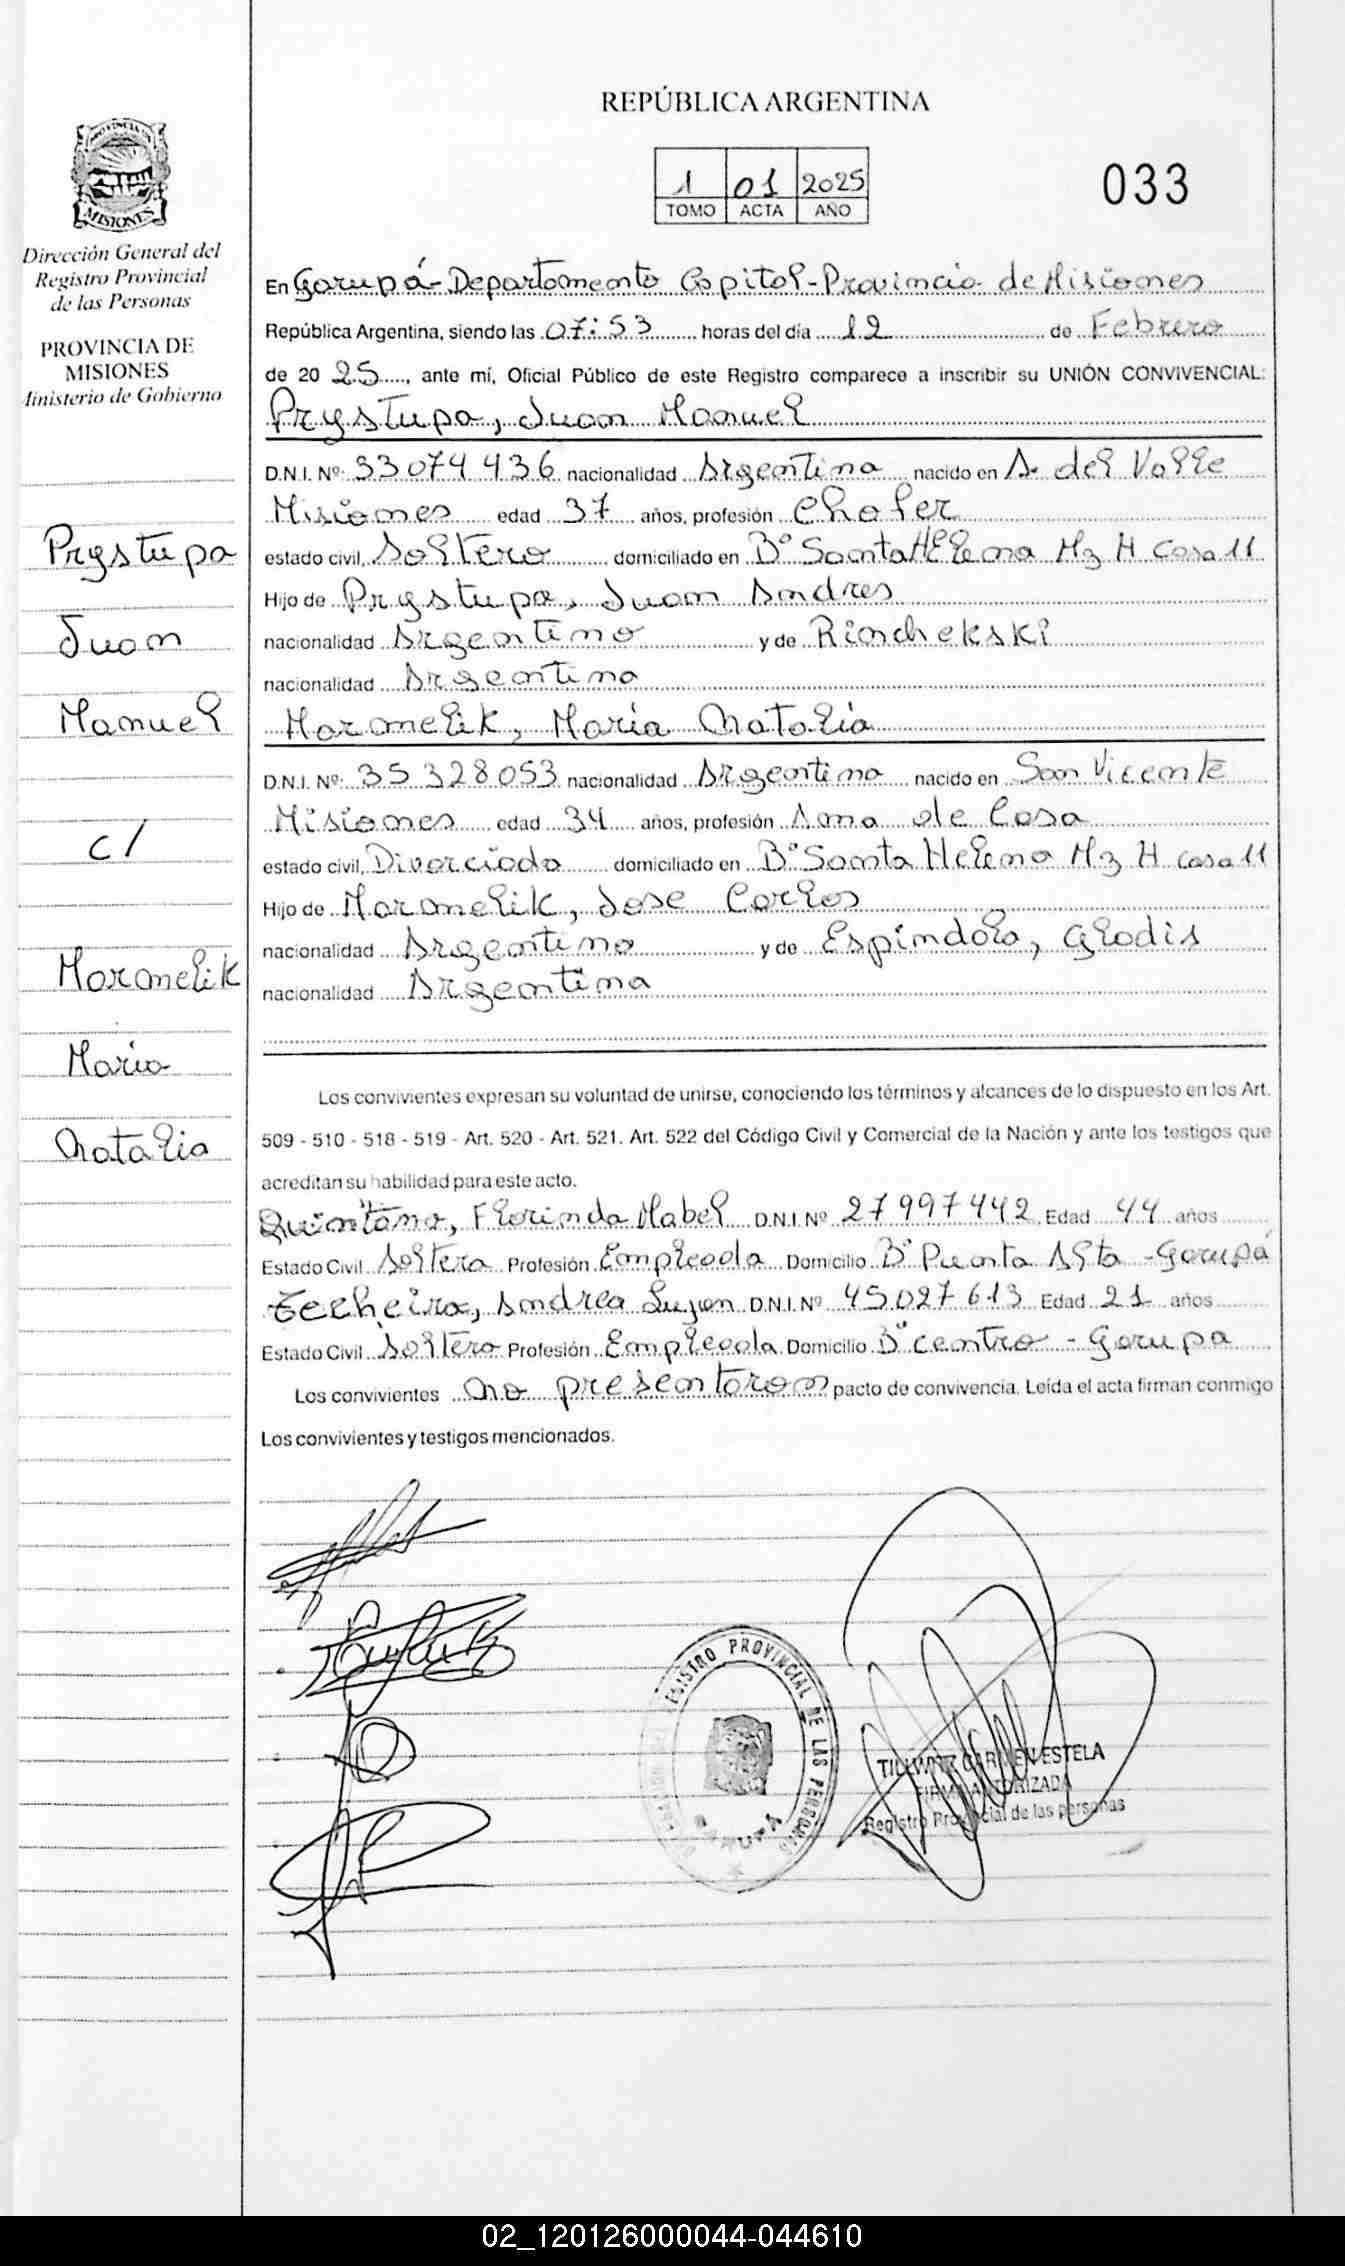 REPÚBLICA ARGENTINA
1 01 2025
TOMO ACTA AÑO
033
PROVINCIA DE
MISIONES
Dirección General del
Registro Provincial
de las Personas
PROVINCIA DE
MISIONES
Ministerio de Gobierno
Prystupa
Juan
Manuel
c/
Marmelik
María
Natalia
En Garupá - Departamento Capital - Provincia de Misiones
República Argentina, siendo las 07:53 horas del día 12 de Febrero
de 20 25, ante mí, Oficial Público de este Registro comparece a inscribir su UNIÓN CONVIVENCIAL:
Prystupa, Juan Manuel
D.N.I. Nº: 33074436 nacionalidad Argentina nacido en A. del Valle
Misiones edad 37 años, profesión Chofer
estado civil, Soltero domiciliado en Bº Santa Helena Mz H Casa 11
Hijo de Prystupa, Juan Andres
nacionalidad Argentino y de Rinchekski
nacionalidad Argentina
Marmelik, María Natalia
D.N.I. Nº: 35328053 nacionalidad Argentina nacido en San Vicente
Misiones edad 34 años, profesión Ama de Casa
estado civil, Divorciada domiciliado en Bº Santa Helena Mz H casa 11
Hijo de Marmelik, Jose Carlos
nacionalidad Argentino y de Espíndola, Gladis
nacionalidad Argentina
Los convivientes expresan su voluntad de unirse, conociendo los términos y alcances de lo dispuesto en los Art.
509 - 510 - 518 - 519 - Art. 520 - Art. 521. Art. 522 del Código Civil y Comercial de la Nación y ante los testigos que
acreditan su habilidad para este acto.
Quintana, Florinda Mabel D.N.I. Nº 27997442 Edad 44 años
Estado Civil Soltera Profesión Empleada Domicilio Bº Punta Alta - Garupá
Techeira, Andrea Lujan D.N.I. Nº 45027613 Edad 21 años
Estado Civil Soltera Profesión Empleada Domicilio Bº Centro - Garupa
Los convivientes no presentaron pacto de convivencia. Leída el acta firman conmigo
Los convivientes y testigos mencionados.
REGISTRO PROVINCIAL DE LAS PERSONAS
GARUPA
CARMEN ESTELA
FIRMA AUTORIZADA
Registro Provincial de las personas
02_120126000044-044610